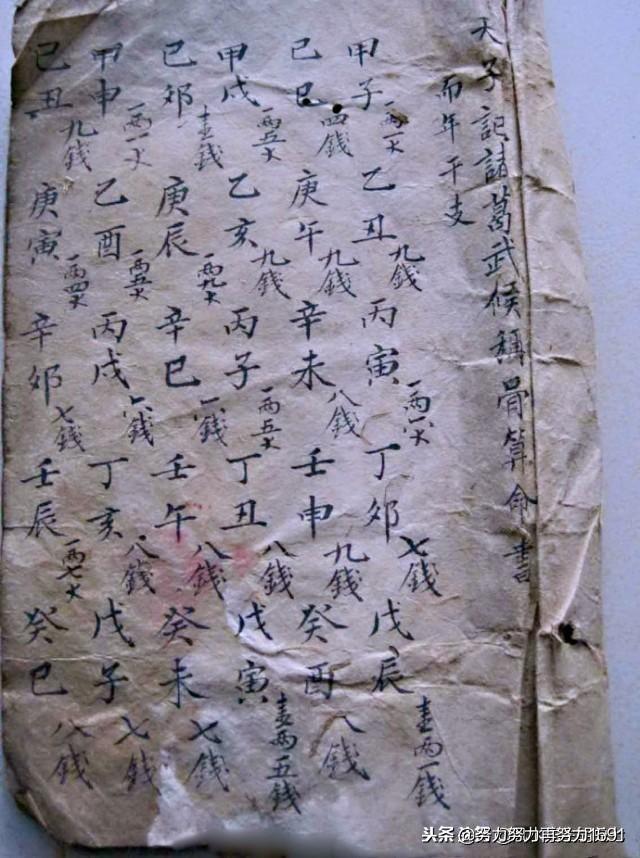 天子記諸葛武候稱骨算命書
而年干支
甲子 一两一 乙丑 九錢 丙寅 一两一 丁卯 七錢 戊辰 壹两一錢
己巳 四錢 庚午 九錢 辛未 八錢 壬申 九錢 癸酉 八錢
甲戌 一两五 乙亥 九錢 丙子 一两五 丁丑 八錢 戊寅 壹两五錢
己卯 壹錢 庚辰 一两九 辛巳 錢 壬午 八錢 癸未 七錢
甲申 一两一 乙酉 一两五 丙戌 六錢 丁亥 八錢 戊子 七錢
己丑 九錢 庚寅 一两四 辛卯 七錢 壬辰 一两七 癸巳 八錢
头条 @努力努力再努力